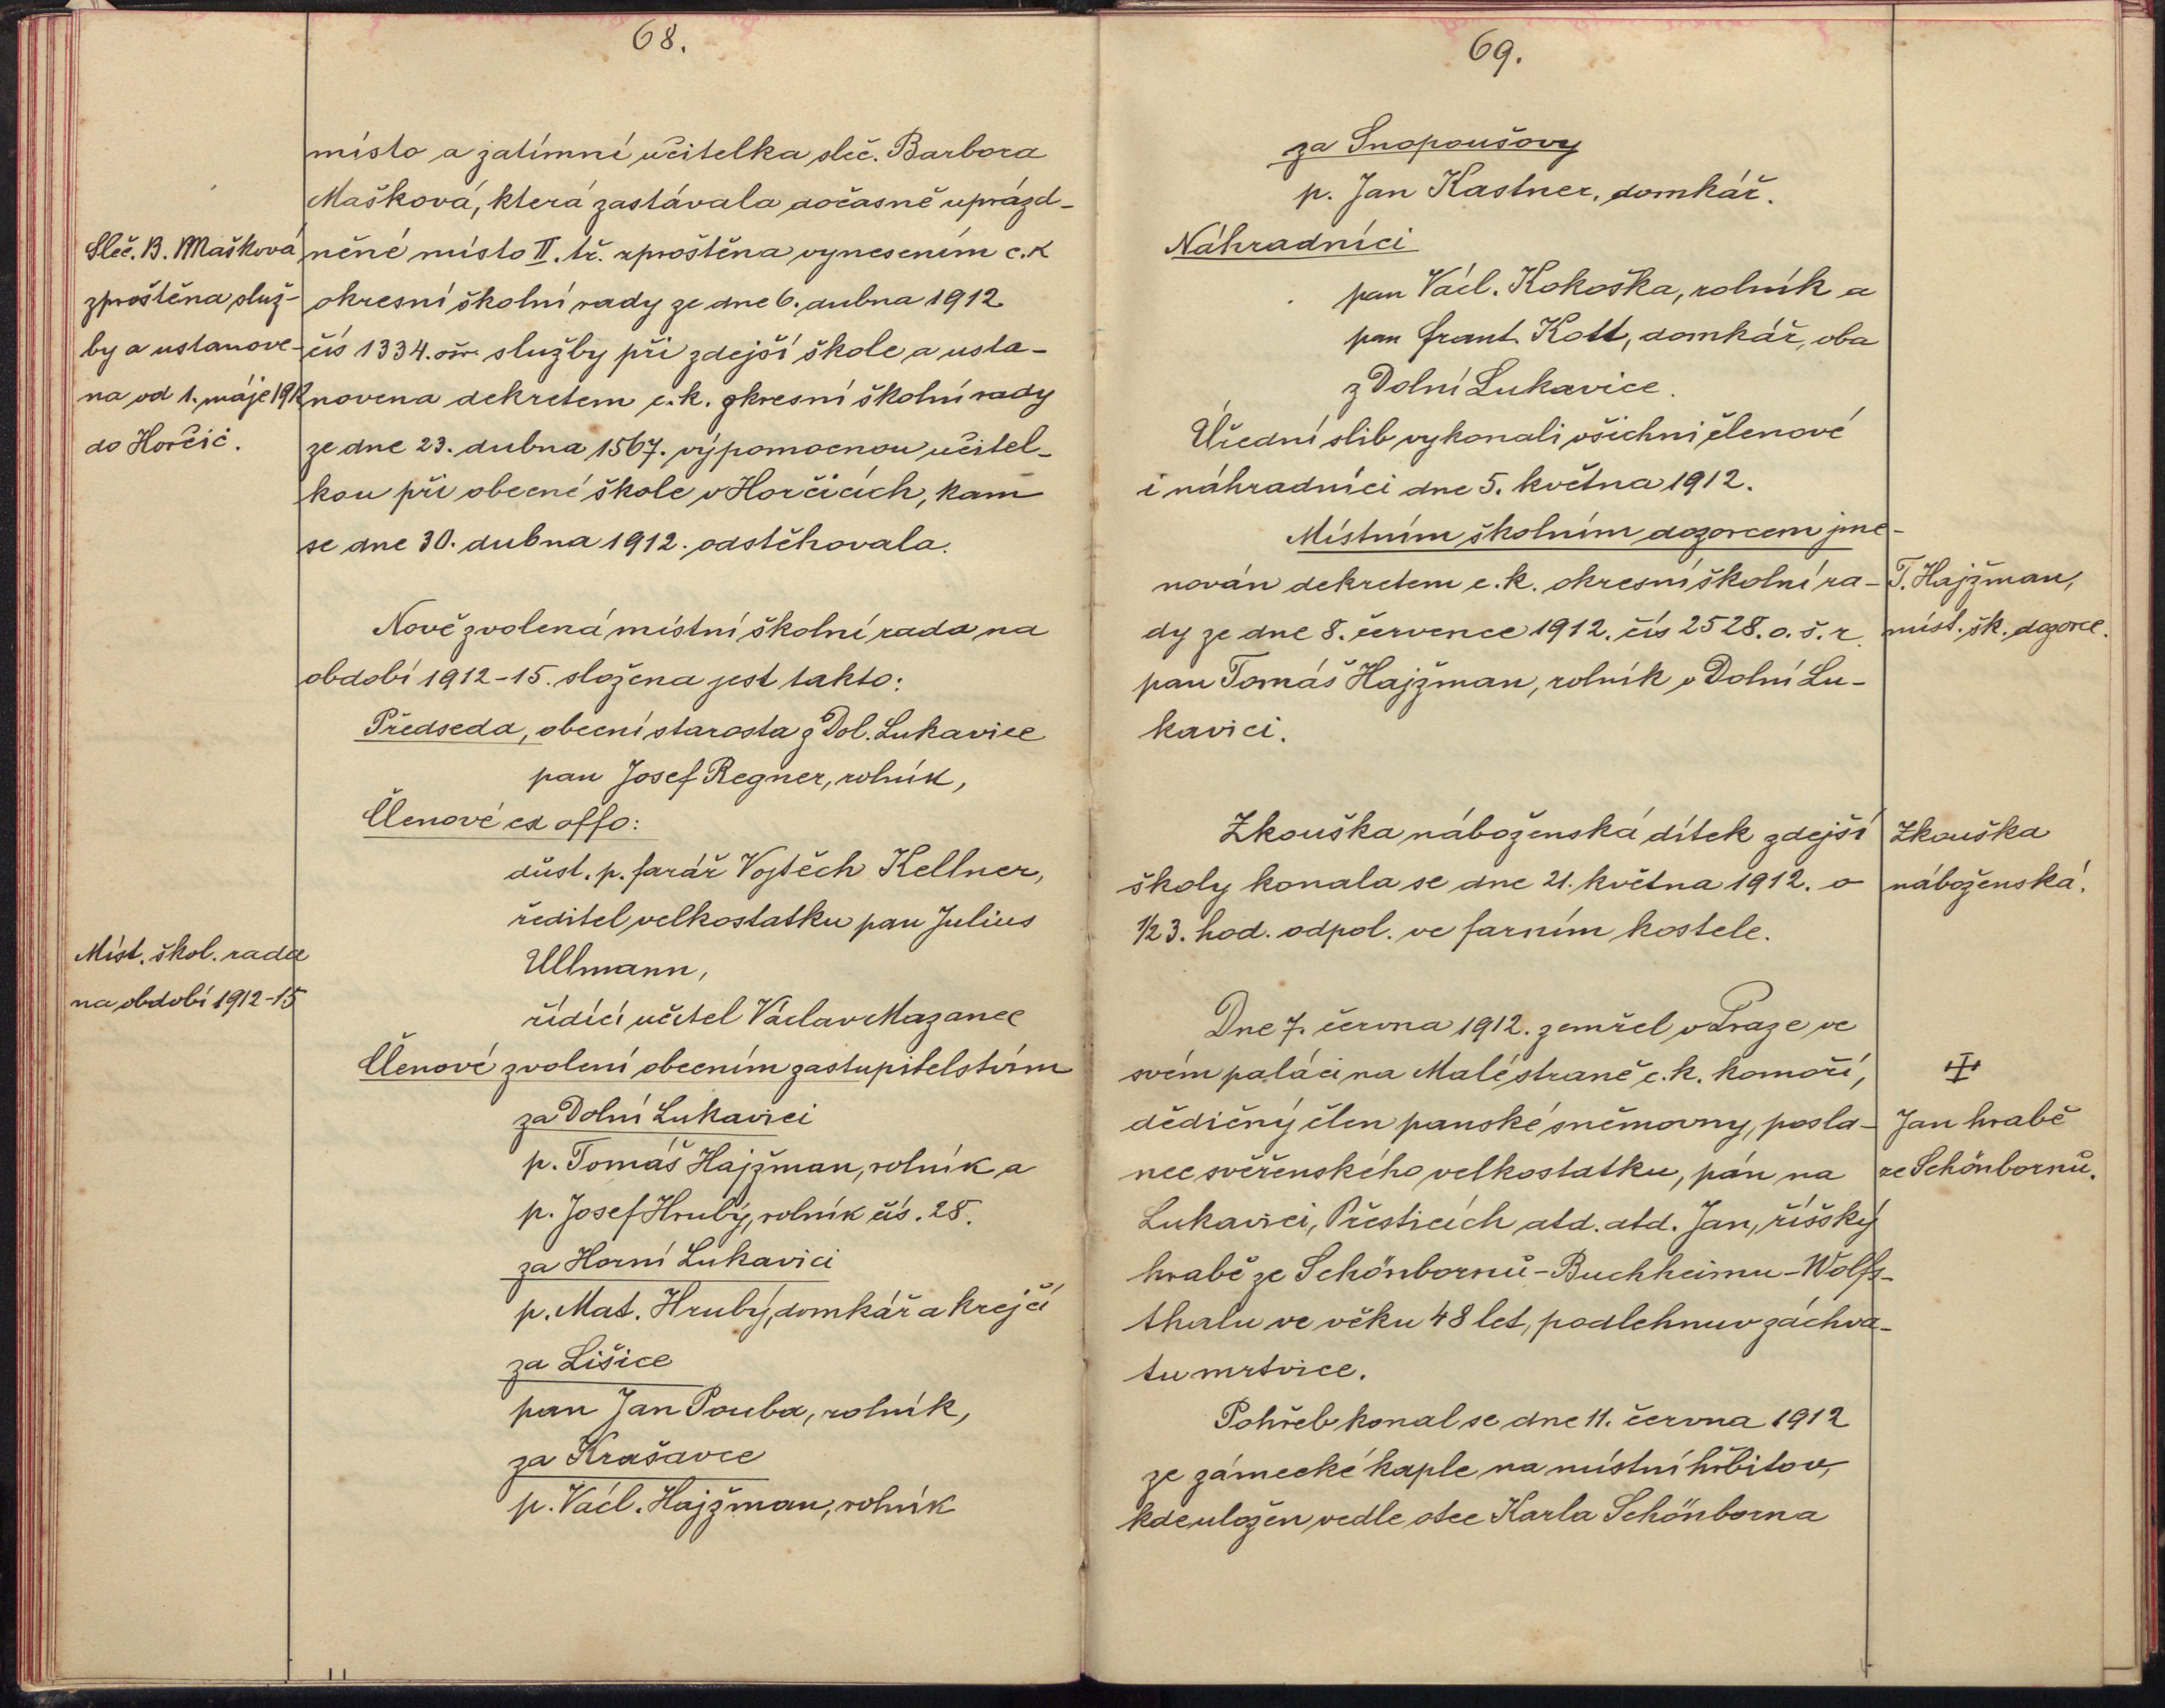 68.
místo a zatímní učitelka sleč. Barbora
Mašková, která zastávala dočasně uprázd-
něné místo II. tř. zproštěna vynesením c.k
okresní školní rady ze dne 6. dubna 1912
čís 1334. ošr. služby při zdejší škole a usta-
novena dekretem c.k. okresní školní rady
ze dne 23. dubna 1567. výpomocnou učitel-
kou při obecné škole v Horčicích, kam
se dne 30. dubna 1912. odstěhovala.
Sleč. B. Mašková
zproštěna služ-
by a ustanove-
na od 1. máje 1912
do Horčic.
Nově zvolená místní školní rada na
období 1912-15. složena jest takto:
Předseda, obecní starosta z Dol. Lukavice
pan Josef Regner, rolník,
Členové ex offo:
důst. p. farář Vojtěch Kellner,
ředitel velkostatku pan Julius
Ullmann,
řídící učitel Václav Mazanec
Členové zvolení obecním zastupitelstvím
Míst. škol. rada
na období 1912-15
za Dolní Lukavici
p. Tomáš Hajžman, rolník a
p. Josef Hrubý, rolník čís. 28.
za Horní Lukavici
p. Mat. Hrubý, domkář a krejčí
za Lišice
pan Jan Pouba, rolník,
za Krašavce
p. Václ. Hajžman, rolník
69.
za Snopoušovy
p. Jan Kastner, domkář.
Náhradníci
pan Václ. Kokoška, rolník a
pan Frant. Kott, domkář, oba
z Dolní Lukavice.
Úřední slib vykonali všichni členové
i náhradníci dne 5. května 1912.
Místním školním dozorcem jme-
nován dekretem c.k. okresní školní ra-
dy ze dne 8. července 1912. čís 2528. o.š.r.
pan Tomáš Hajžman, rolník v Dolní Lu-
kavici.
T. Hajžman,
míst. šk. dozorce.
Zkouška náboženská dítek zdejší
školy konala se dne 21. května 1912. o
1/2 3. hod. odpol. ve farním kostele.
Zkouška
náboženská.
Dne 7. června 1912. zemřel v Praze ve
svém paláci na Malé straně c.k. komoří,
dědičný člen panské sněmovny, posla-
nec svěřenského velkostatku, pán na
Lukavici, Přesticích atd. atd. Jan, říšský
hrabě ze Schönbornů-Buchheimu-Wolfs-
thalu ve věku 48 let, podlehnuv záchva-
tu mrtvice.
Jan hrabě
ze Schönbornů.
Pohřeb konal se dne 11. června 1912
ze zámecké kaple na místní hřbitov,
kde uložen vedle otce Karla Schönborna